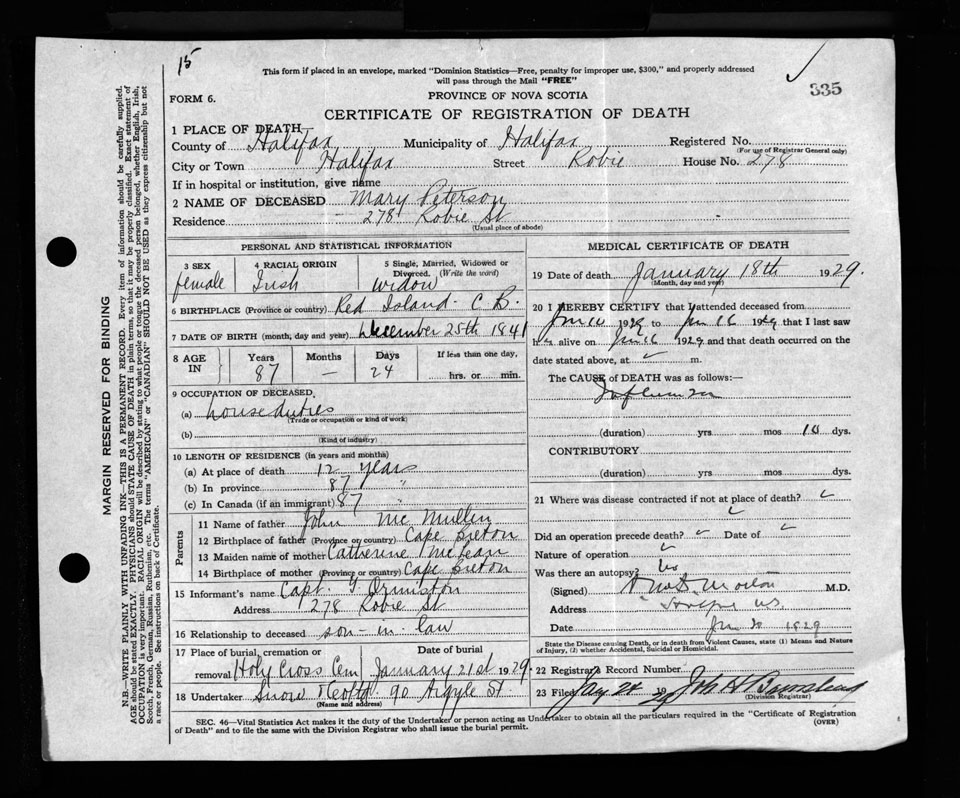 15
This form if placed in an envelope, marked "Dominion Statistics—Free, penalty for improper use, $300," and properly addressed
will pass through the Mail "FREE"
335
FORM 6.
PROVINCE OF NOVA SCOTIA
CERTIFICATE OF REGISTRATION OF DEATH
1 PLACE OF DEATH
County of Halifax Municipality of Halifax Registered No.
(For use of Registrar General only)
City or Town Halifax Street Robie House No. 278
If in hospital or institution, give name
2 NAME OF DECEASED Mary Peterson
Residence 278 Robie St
(Usual place of abode)
PERSONAL AND STATISTICAL INFORMATION
3 SEX 4 RACIAL ORIGIN 5 Single, Married, Widowed or
Divorced. (Write the word)
female Irish widow
6 BIRTHPLACE (Province or country) Red Island C.B.
7 DATE OF BIRTH (month, day and year) December 25th 1841
8 AGE IN Years Months Days If less than one day,
87 — 24 hrs. or min.
9 OCCUPATION OF DECEASED
(a) house duties
(Trade or occupation or kind of work)
(b)
(Kind of industry)
10 LENGTH OF RESIDENCE (in years and months)
(a) At place of death 12 years
(b) In province 87 "
(c) In Canada (if an immigrant) 87 "
Parents
11 Name of father John McMullen
12 Birthplace of father (Province or country) Cape Breton
13 Maiden name of mother Catherine McLean
14 Birthplace of mother (Province or country) Cape Breton
15 Informant's name Capt. Ormiston
Address 278 Robie St
16 Relationship to deceased son-in-law
17 Place of burial, cremation or Date of burial
removal Holy Cross Cem January 21st 1929
18 Undertaker Snow 90 Argyle St
(Name and address)
MEDICAL CERTIFICATE OF DEATH
19 Date of death January 18th 1929.
(Month, day and year)
20 I HEREBY CERTIFY that I attended deceased from
Jan 10 1929 to Jan 16 1929 that I last saw
h alive on Jan 16 1929 and that death occurred on the
date stated above, at m.
The CAUSE of DEATH was as follows:—
Influenza
(duration) yrs mos 10 dys.
CONTRIBUTORY
(duration) yrs mos dys.
21 Where was disease contracted if not at place of death?
Did an operation precede death? Date of
Nature of operation
Was there an autopsy? No
(Signed) M.D.
Address
Date 1929
State the Disease causing Death, or in death from Violent Causes, state (1) Means and Nature
of Injury, (2) whether Accidental, Suicidal or Homicidal.
22 Registrar's Record Number
23 Filed 24 1929
(Division Registrar)
SEC. 46—Vital Statistics Act makes it the duty of the Undertaker or person acting as Undertaker to obtain all the particulars required in the "Certificate of Registration
of Death" and to file the same with the Division Registrar who shall issue the burial permit. (OVER)
MARGIN RESERVED FOR BINDING
N.B.—WRITE PLAINLY WITH UNFADING INK—THIS IS A PERMANENT RECORD. Every item of information should be carefully supplied.
AGE should be stated EXACTLY. PHYSICIANS should STATE CAUSE OF DEATH in plain terms, so that it may be properly classified. Exact statement of
OCCUPATION is very important. RACIAL ORIGIN will be described by stating to what people or tongue the deceased person belonged, whether English, Irish,
Scotch, French, German, Russian, Ruthenian, etc. The terms "AMERICAN" or "CANADIAN" SHOULD NOT BE USED as they express citizenship but not
a race or people. See instructions on back of Certificate.